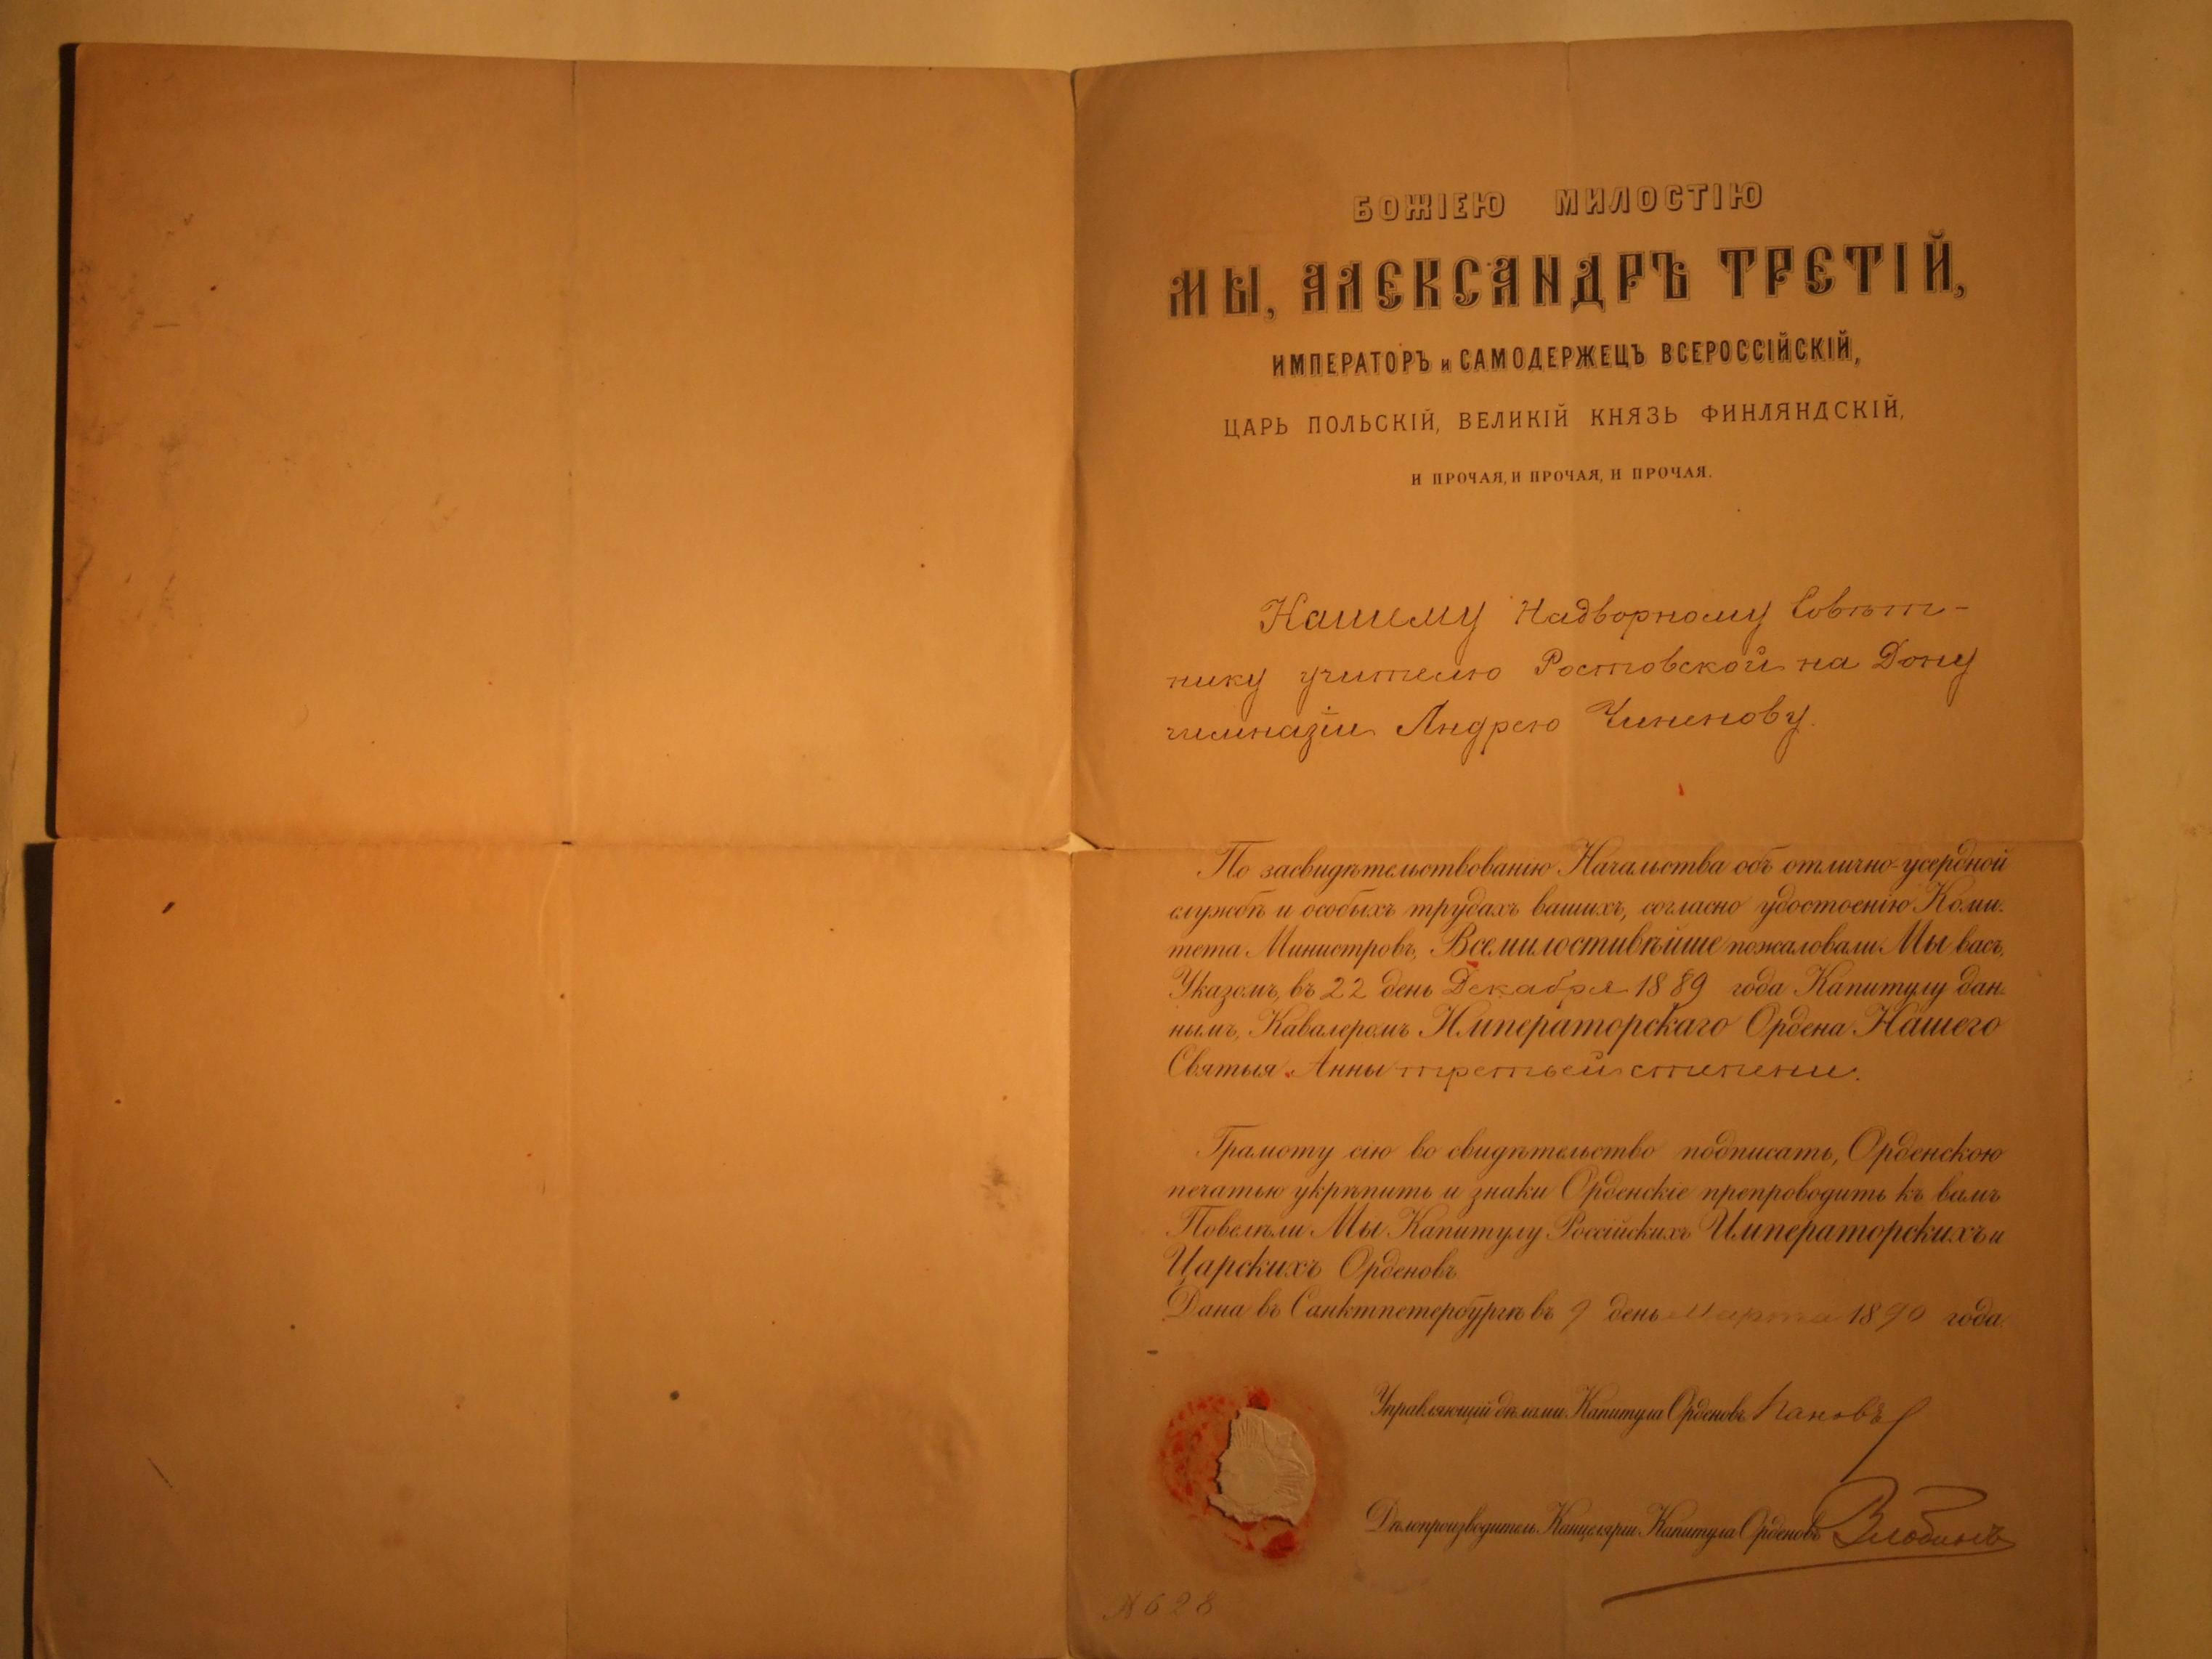 БОЖІЕЮ МИЛОСТІЮ
МЫ, АЛЕКСАНДРЪ ТРЕТІЙ,
ИМПЕРАТОРЪ и САМОДЕРЖЕЦЪ ВСЕРОССІЙСКІЙ,
ЦАРЬ ПОЛЬСКІЙ, ВЕЛИКІЙ КНЯЗЬ ФИНЛЯНДСКІЙ,
И ПРОЧАЯ, И ПРОЧАЯ, И ПРОЧАЯ.
Нашему Надворному Совѣт-
нику учителю Ростовской на Дону
гимназіи Андрею Чиненову.
По засвидѣтельствованію Начальства объ отлично-усердной
службѣ и особыхъ трудахъ вашихъ, согласно удостоенію Коми-
тета Министровъ, Всемилостивѣйше пожаловали Мы васъ,
Указомъ, въ 22 день Декабря 1889 года Капитулу дан-
нымъ, Кавалеромъ Императорскаго Ордена Нашего
Святыя Анны третьей степени.
Грамоту сію во свидѣтельство подписать, Орденскою
печатью укрѣпить и знаки Орденскіе препроводить къ вамъ
Повелѣли Мы Капитулу Россійскихъ Императорскихъ и
Царскихъ Орденовъ.
Дана въ Санктпетербургѣ въ 9 день Марта 1890 года.
Управляющій дѣлами Капитула Орденовъ Пановъ
Дѣлопроизводитель Канцеляріи Капитула Орденовъ Злобинъ
№ 628